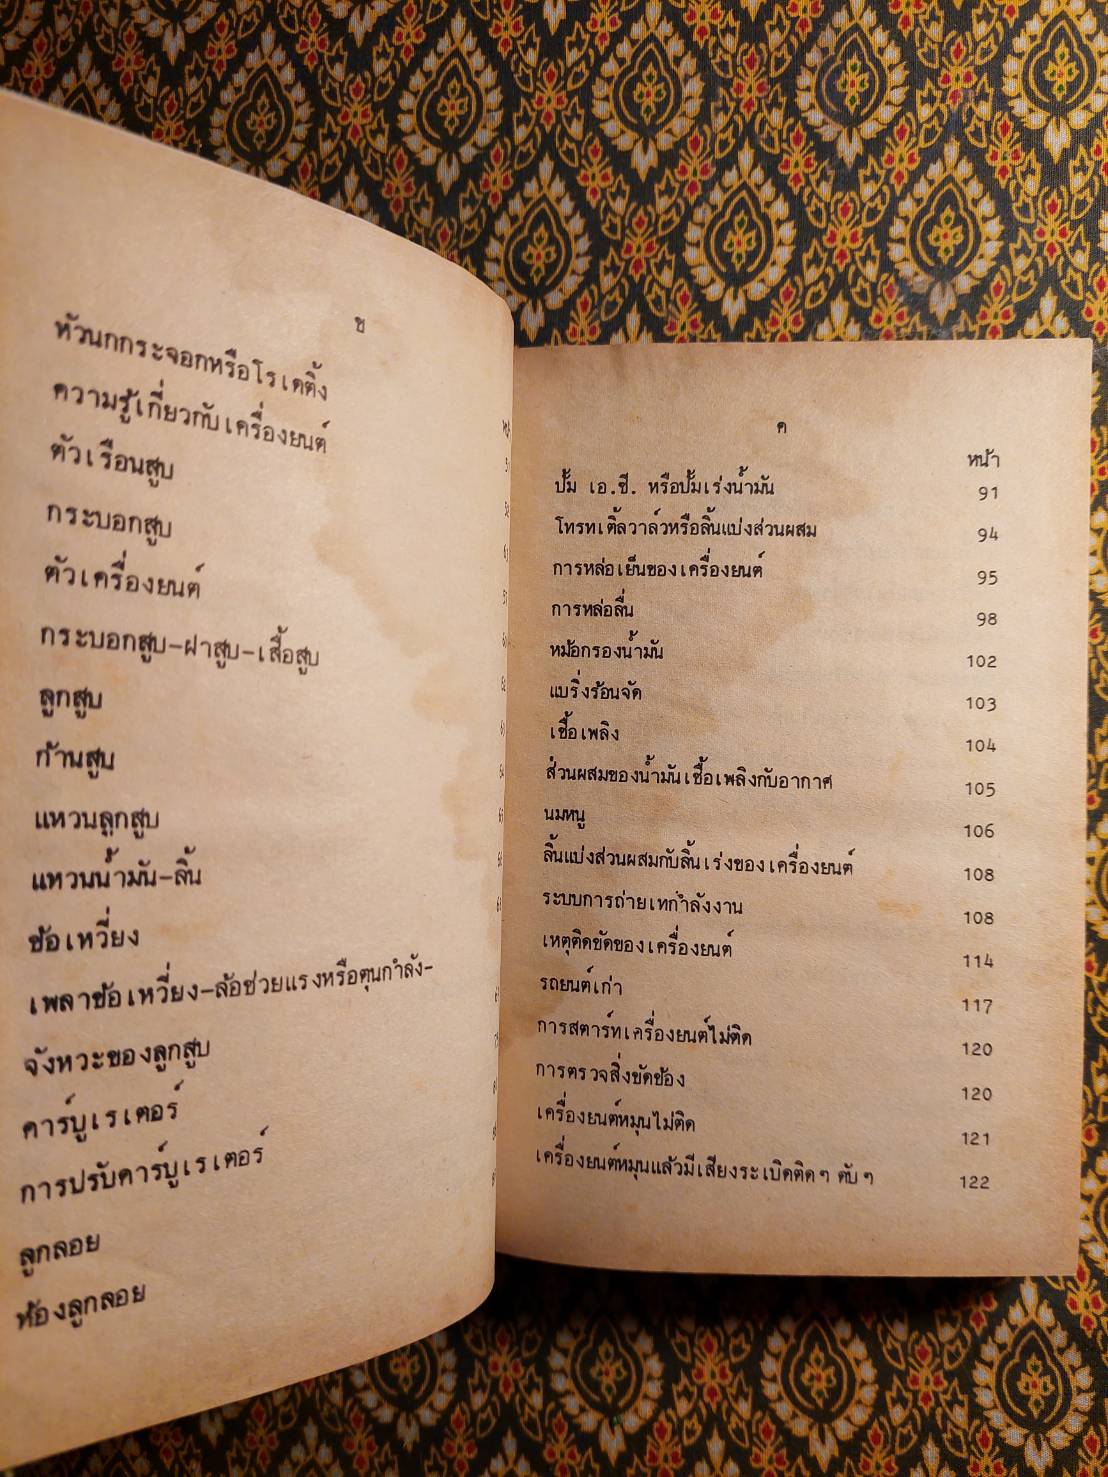 ข
หัวนกกระจอกหรือโรเตติ้ง
ความรู้เกี่ยวกับเครื่องยนต์
ตัวเรือนสูบ
กระบอกสูบ
ตัวเครื่องยนต์
กระบอกสูบ-ฝาสูบ-เสื้อสูบ
ลูกสูบ
ก้านสูบ
แหวนลูกสูบ
แหวนน้ำมัน-ลิ้น
ข้อเหวี่ยง
เพลาข้อเหวี่ยง-ล้อช่วยแรงหรือตุนกำลัง-
จังหวะของลูกสูบ
คาร์บูเรเตอร์
การปรับคาร์บูเรเตอร์
ลูกลอย
ห้องลูกลอย
ค
หน้า
ปั๊ม เอ.ซี. หรือปั๊มเร่งน้ำมัน 91
โทรทเติ้ลวาล์วหรือลิ้นแบ่งส่วนผสม 94
การหล่อเย็นของเครื่องยนต์ 95
การหล่อลื่น 98
หม้อกรองน้ำมัน 102
แบริ่งร้อนจัด 103
เชื้อเพลิง 104
ส่วนผสมของน้ำมันเชื้อเพลิงกับอากาศ 105
นมหนู 106
ลิ้นแบ่งส่วนผสมกับลิ้นเร่งของเครื่องยนต์ 108
ระบบการถ่ายเทกำลังงาน 108
เหตุติดขัดของเครื่องยนต์ 114
รถยนต์เก่า 117
การสตาร์ทเครื่องยนต์ไม่ติด 120
การตรวจสิ่งขัดข้อง 120
เครื่องยนต์หมุนไม่ติด 121
เครื่องยนต์หมุนแล้วมีเสียงระเบิดติดๆ ดับๆ 122